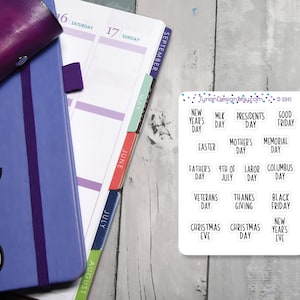 16
SATURDAY
17
SUNDAY
SEPTEMBER
JUNE
JULY
AUGUST
NEW
YEAR'S
DAY
MLK
DAY
PRESIDENTS
DAY
GOOD
FRIDAY
EASTER
MOTHER'S
DAY
MEMORIAL
DAY
FATHER'S
DAY
4TH OF
JULY
LABOR
DAY
COLUMBUS
DAY
VETERANS
DAY
THANKS
GIVING
BLACK
FRIDAY
CHRISTMAS
EVE
CHRISTMAS
DAY
NEW
YEAR'S
EVE